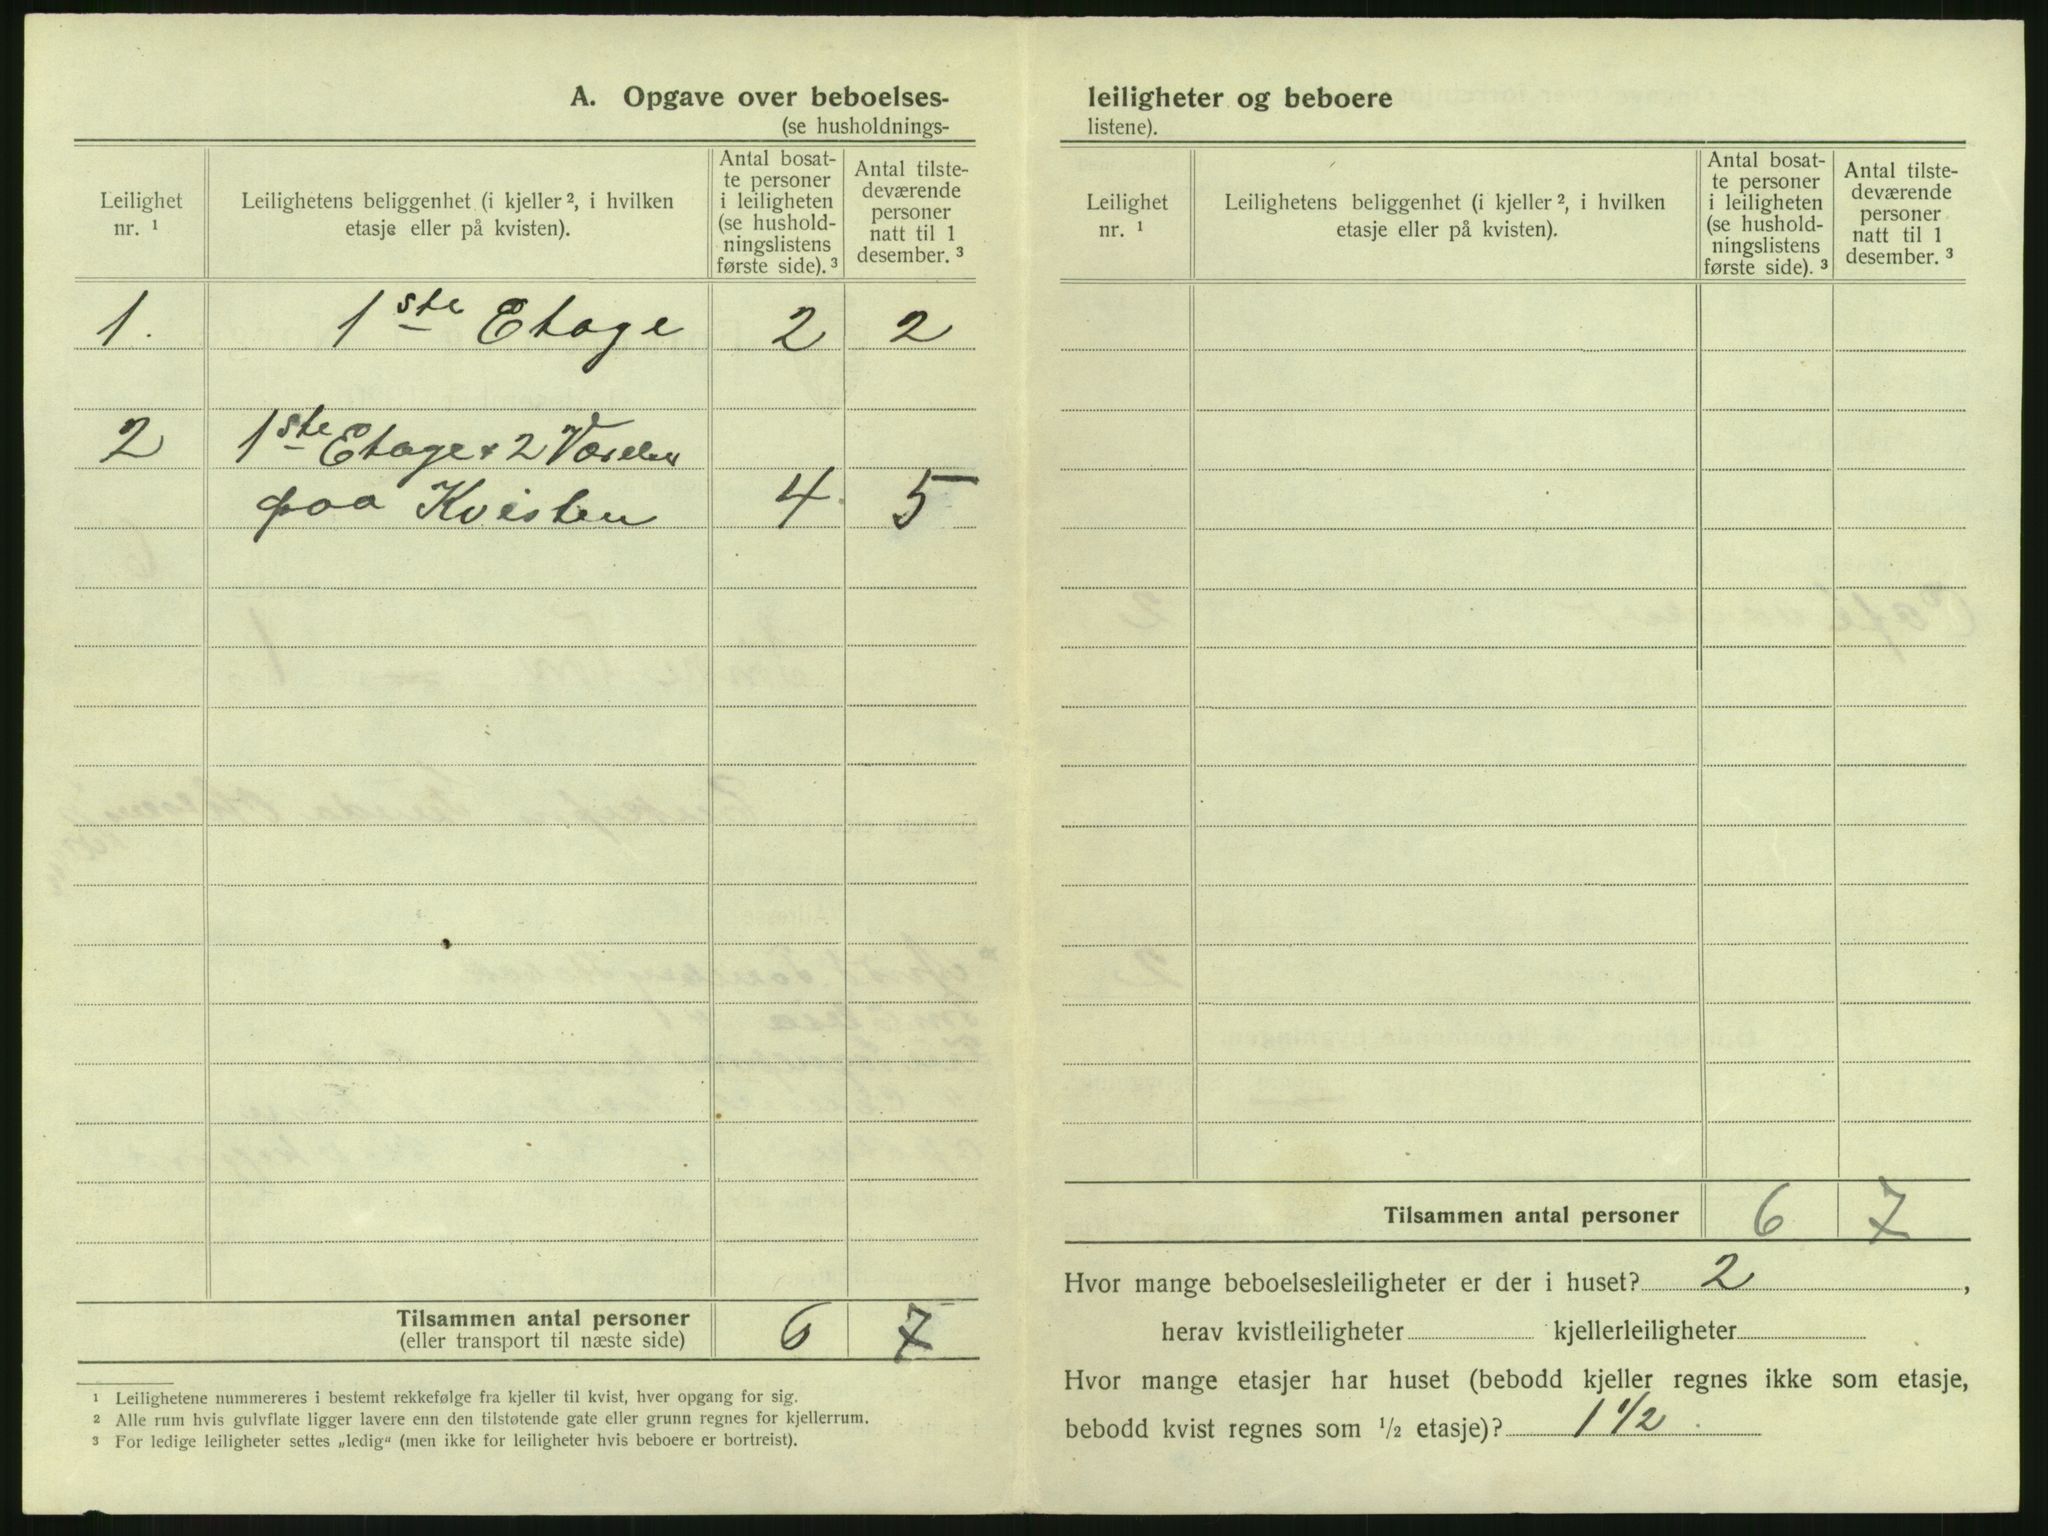 A. Opgave over beboelses- leiligheter og beboere
(se husholdnings- listene).
Leilighet nr. ¹
Leilighetens beliggenhet (i kjeller ², i hvilken etasje eller på kvisten).
Antal bosat-
te personer
i leiligheten
(se hushold-
ningslistens
første side). ³
Antal tilste-
deværende
personer
natt til 1
desember. ³
1. 1ste Etage 2 2
2 1ste Etage + 2 Værelser
paa Kvisten 4 5
Tilsammen antal personer 6 7
(eller transport til næste side)
¹ Leilighetene nummereres i bestemt rekkefølge fra kjeller til kvist, hver opgang for sig.
² Alle rum hvis gulvflate ligger lavere enn den tilstøtende gate eller grunn regnes for kjellerrum.
³ For ledige leiligheter settes „ledig“ (men ikke for leiligheter hvis beboere er bortreist).
Leilighet nr. ¹
Leilighetens beliggenhet (i kjeller ², i hvilken etasje eller på kvisten).
Antal bosat-
te personer
i leiligheten
(se hushold-
ningslistens
første side). ³
Antal tilste-
deværende
personer
natt til 1
desember. ³
Tilsammen antal personer 6 7
Hvor mange beboelsesleiligheter er der i huset? 2 ,
herav kvistleiligheter kjellerleiligheter
Hvor mange etasjer har huset (bebodd kjeller regnes ikke som etasje,
bebodd kvist regnes som ½ etasje)? 1 ½ .